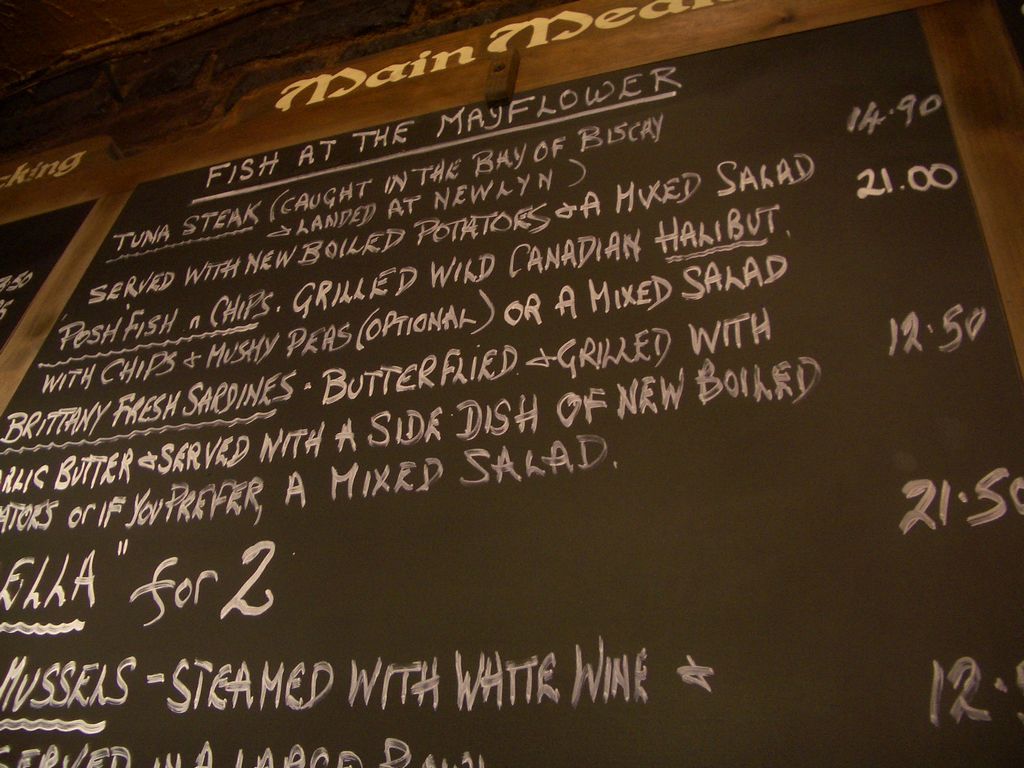 Main Meals
cking
FISH AT THE MAYFLOWER
TUNA STEAK (CAUGHT IN THE BAY OF BISCAY 14.90
LANDED AT NEWLYN)
SERVED WITH NEW BOILED POTATOES & A MIXED SALAD 21.00
POSH FISH n CHIPS. GRILLED WILD CANADIAN HALIBUT.
WITH CHIPS & MUSHY PEAS (OPTIONAL) OR A MIXED SALAD
BRITTANY FRESH SARDINES - BUTTERFLIED & GRILLED WITH 12.50
ARLIC BUTTER & SERVED WITH A SIDE DISH OF NEW BOILED
ATOES or IF YOU PREFER, A MIXED SALAD.
21.50
ELLA" for 2
MUSSELS - STEAMED WITH WHITE WINE & 12.
SERVED IN A LARGE BOWL